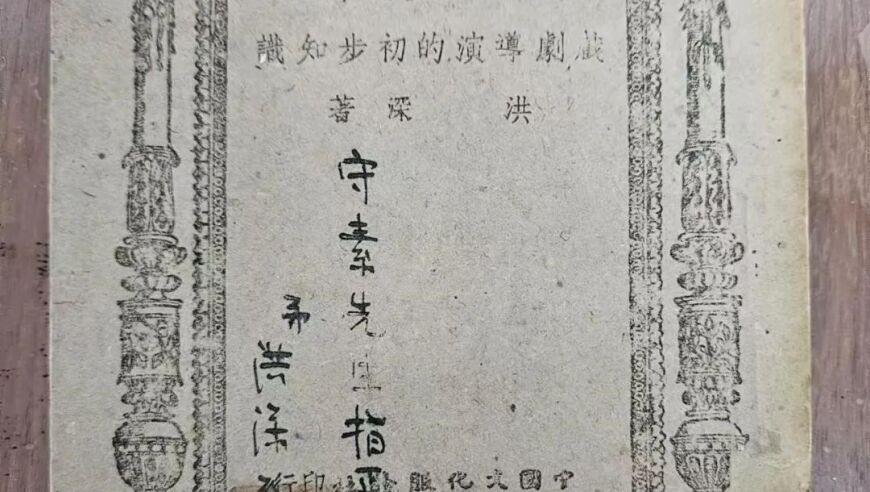 戲劇導演的初步知識
洪深著
守素先生指正
弟洪深
中國文化服務社印行